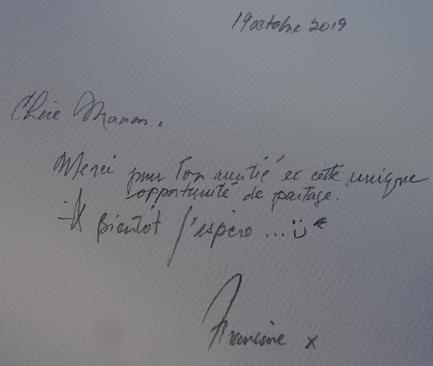 19 octobre 2019
Chère Manon.
Merci pour ton amitié et cette unique
opportunité de partage.
À Bientôt j'espère...
Francine x